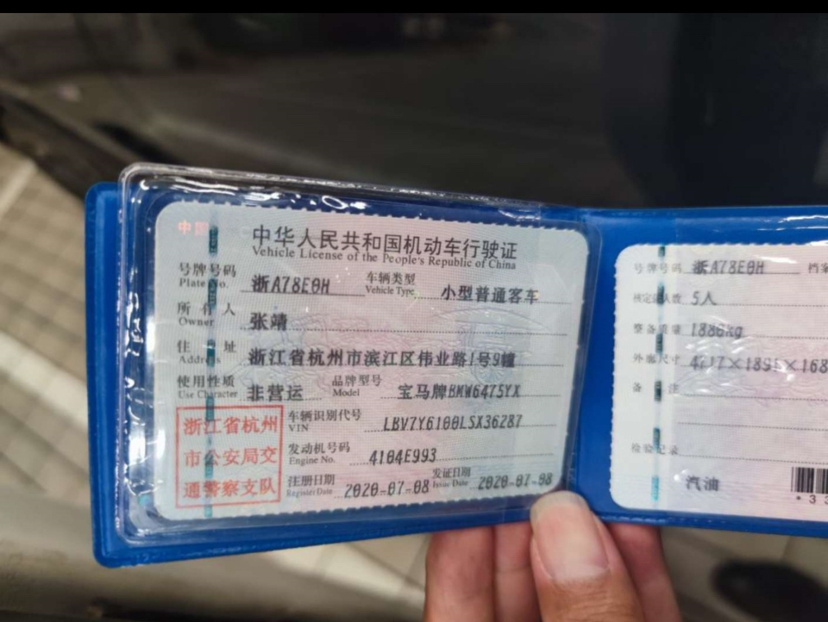 中华人民共和国机动车行驶证
Vehicle License of the People's Republic of China
号牌号码 浙A78E0H 车辆类型 小型普通客车
Plate No. Vehicle Type
所有人 张靖
Owner
住址 浙江省杭州市滨江区伟业路1号9幢
Address
使用性质 非营运 品牌型号 宝马牌BMW6475YX
Use Character Model
浙江省杭州
市公安局交
通警察支队
车辆识别代号 LBV7Y6100LSX36287
VIN
发动机号码 4104E993
Engine No.
注册日期 2020-07-08 发证日期 2020-07-08
Register Date Issue Date
号牌号码 浙A78E0H 档案
核定载人数 5人
整备质量 1880kg
外廓尺寸 4717×1891×168
备注
检验记录
汽油